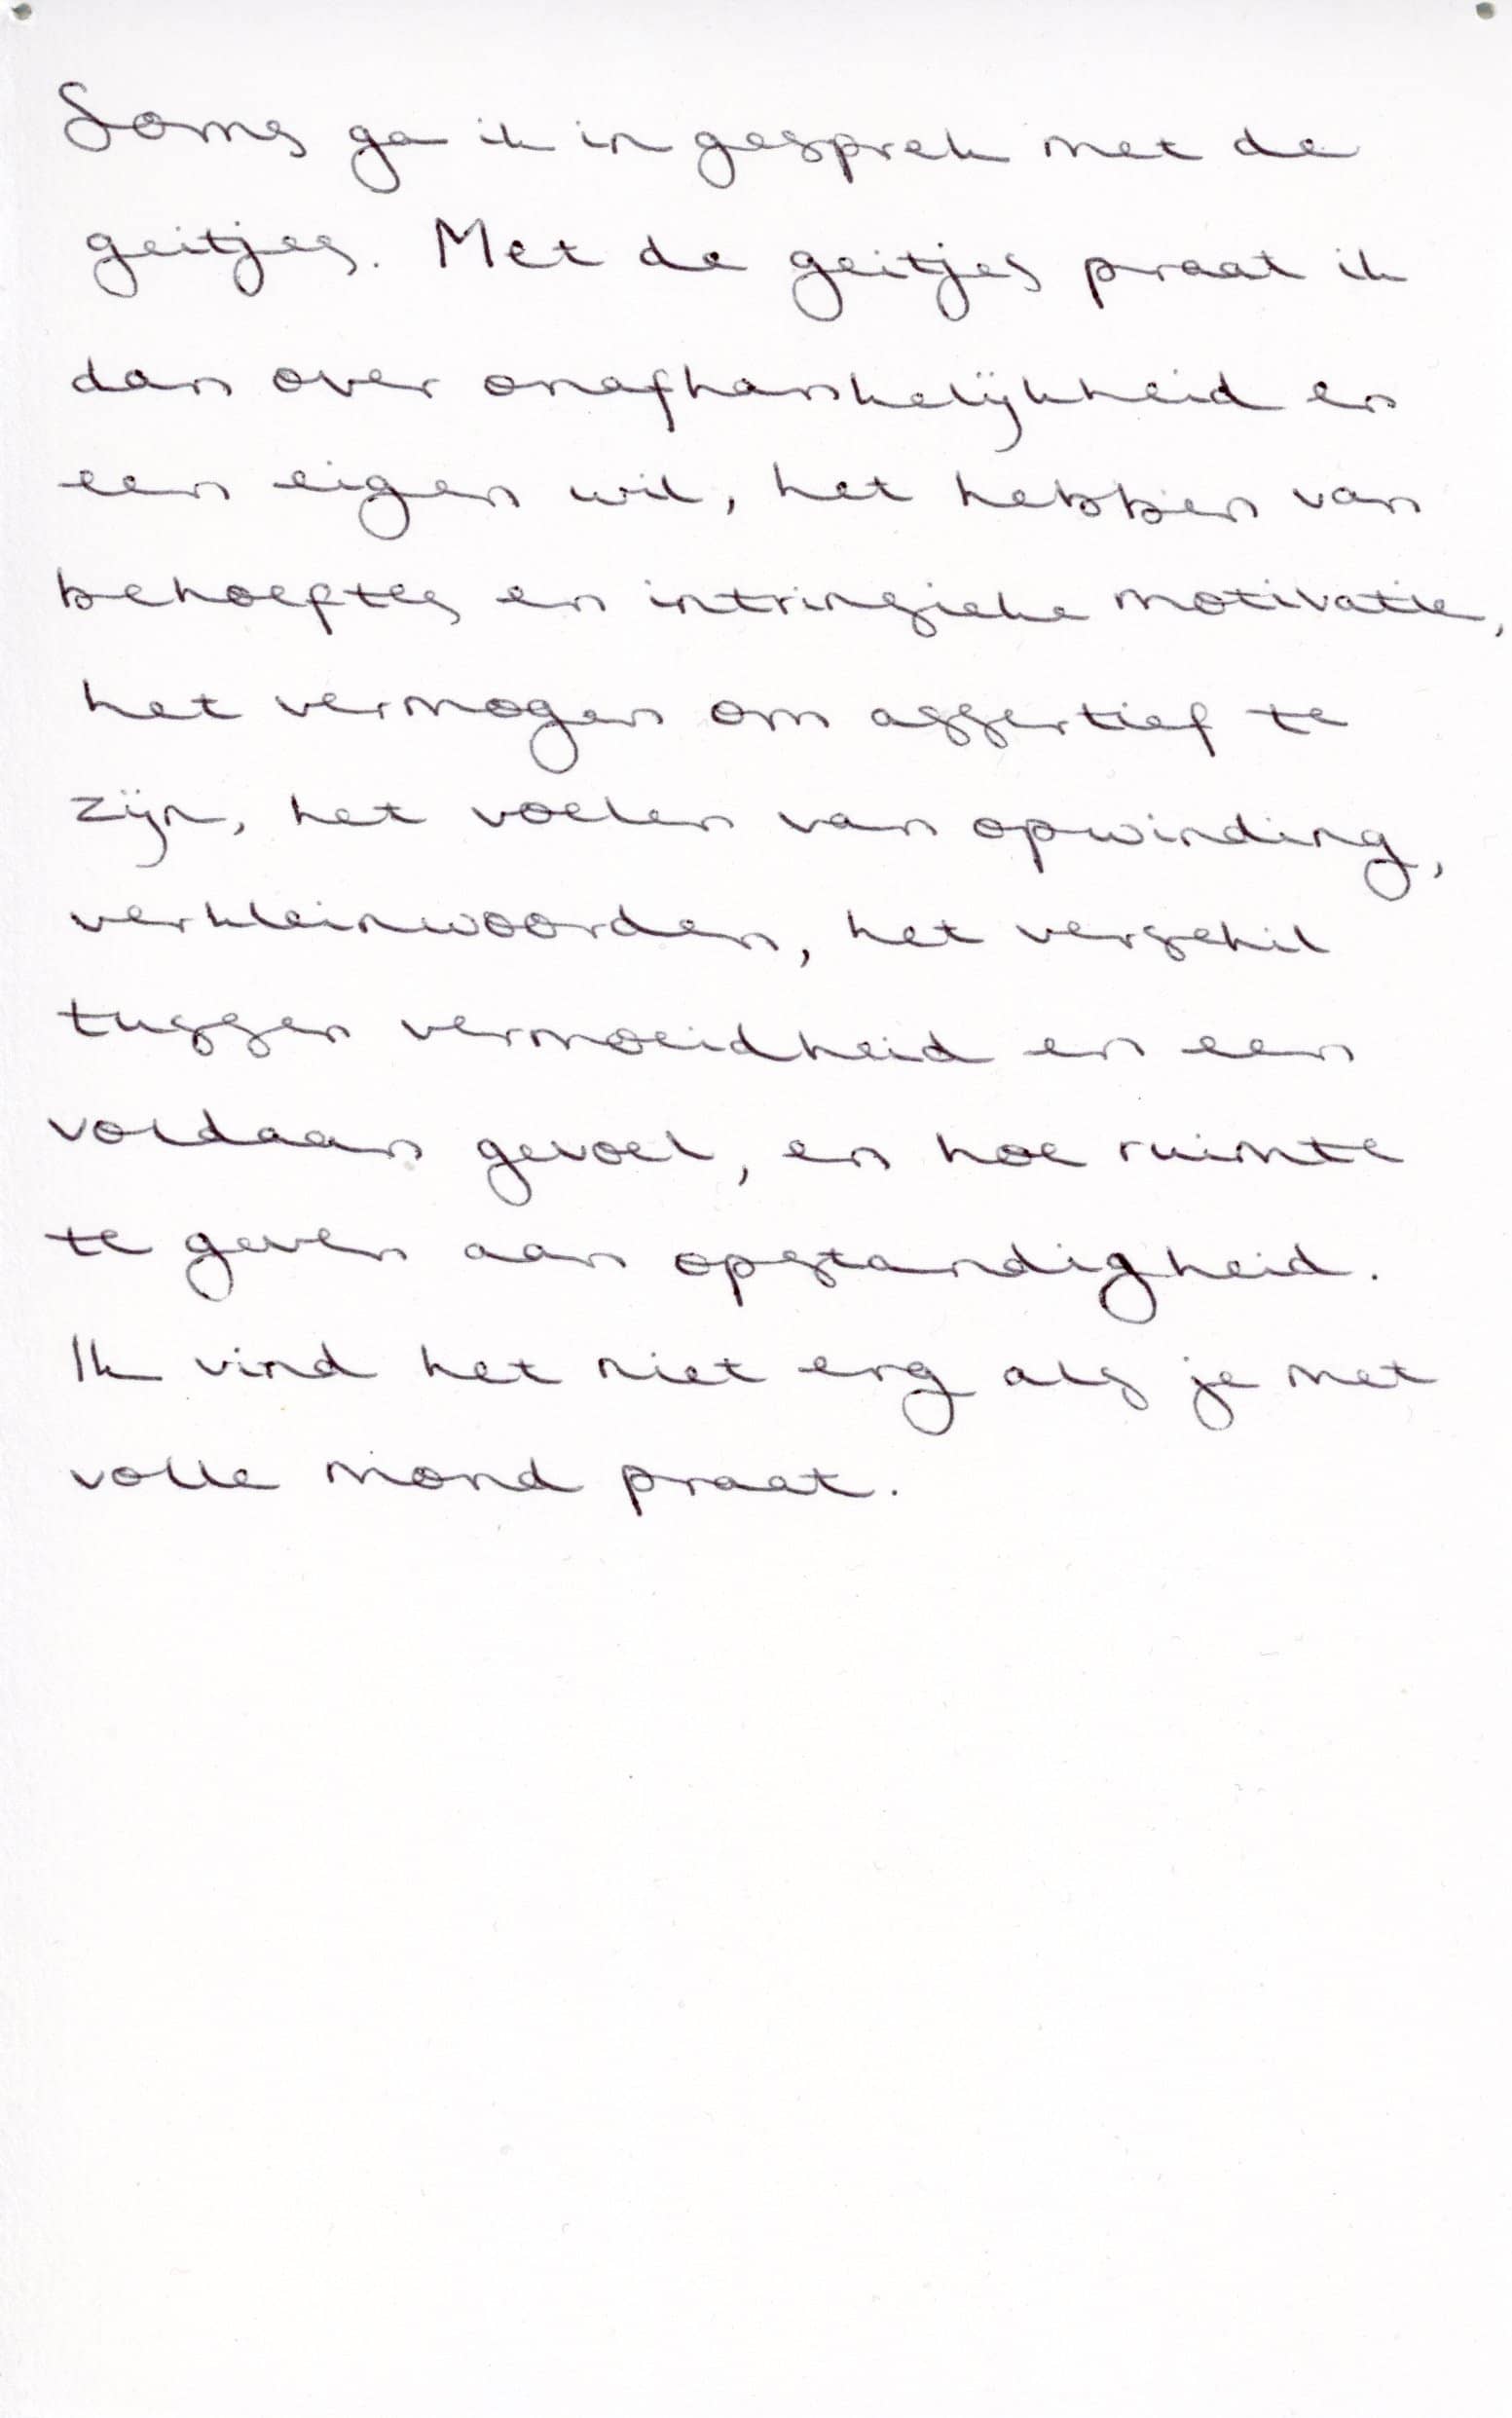 Soms ga ik in gesprek met de
geitjes. Met de geitjes praat ik
dan over onafhankelijkheid en
een eigen wil, het hebben van
behoeftes en intrinsieke motivatie,
het vermogen om assertief te
zijn, het voelen van opwinding,
verkleinwoorden, het verschil
tussen vermoeidheid en een
voldaan gevoel, en hoe ruimte
te geven aan opstandigheid.
Ik vind het niet erg als je met
volle mond praat.